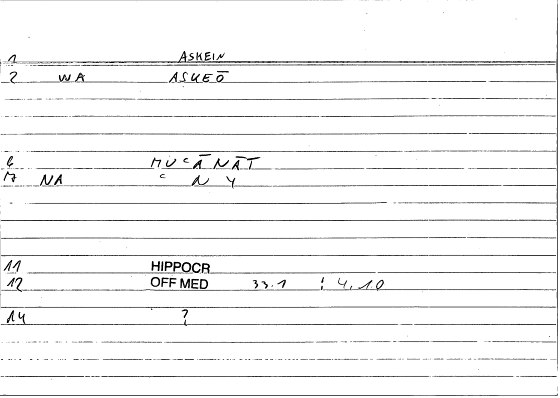 1 ASKEIN
2 WA ASKEŌ
6 MUʿĀNĀT
7 NA ʿ N Y
11 HIPPOCR
12 OFF MED 33.1 : 4,10
14 ?